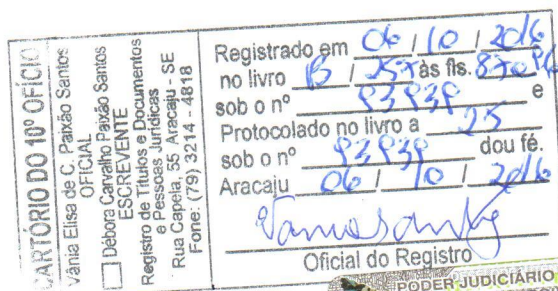 CARTÓRIO DO 10º OFÍCIO
Vânia Elisa de C. Paixão Santos
OFICIAL
Débora Carvalho Paixão Santos
ESCREVENTE
Registro de Títulos e Documentos
e Pessoas Jurídicas
Rua Capela, 55 Aracaju - SE
Fone: (79) 3214 - 4818
Registrado em 06 / 10 / 2016
no livro B / às fls.
sob o nº e
Protocolado no livro a 25
sob o nº dou fé.
Aracaju 06 / 10 / 2016
Oficial do Registro
PODER JUDICIÁRIO